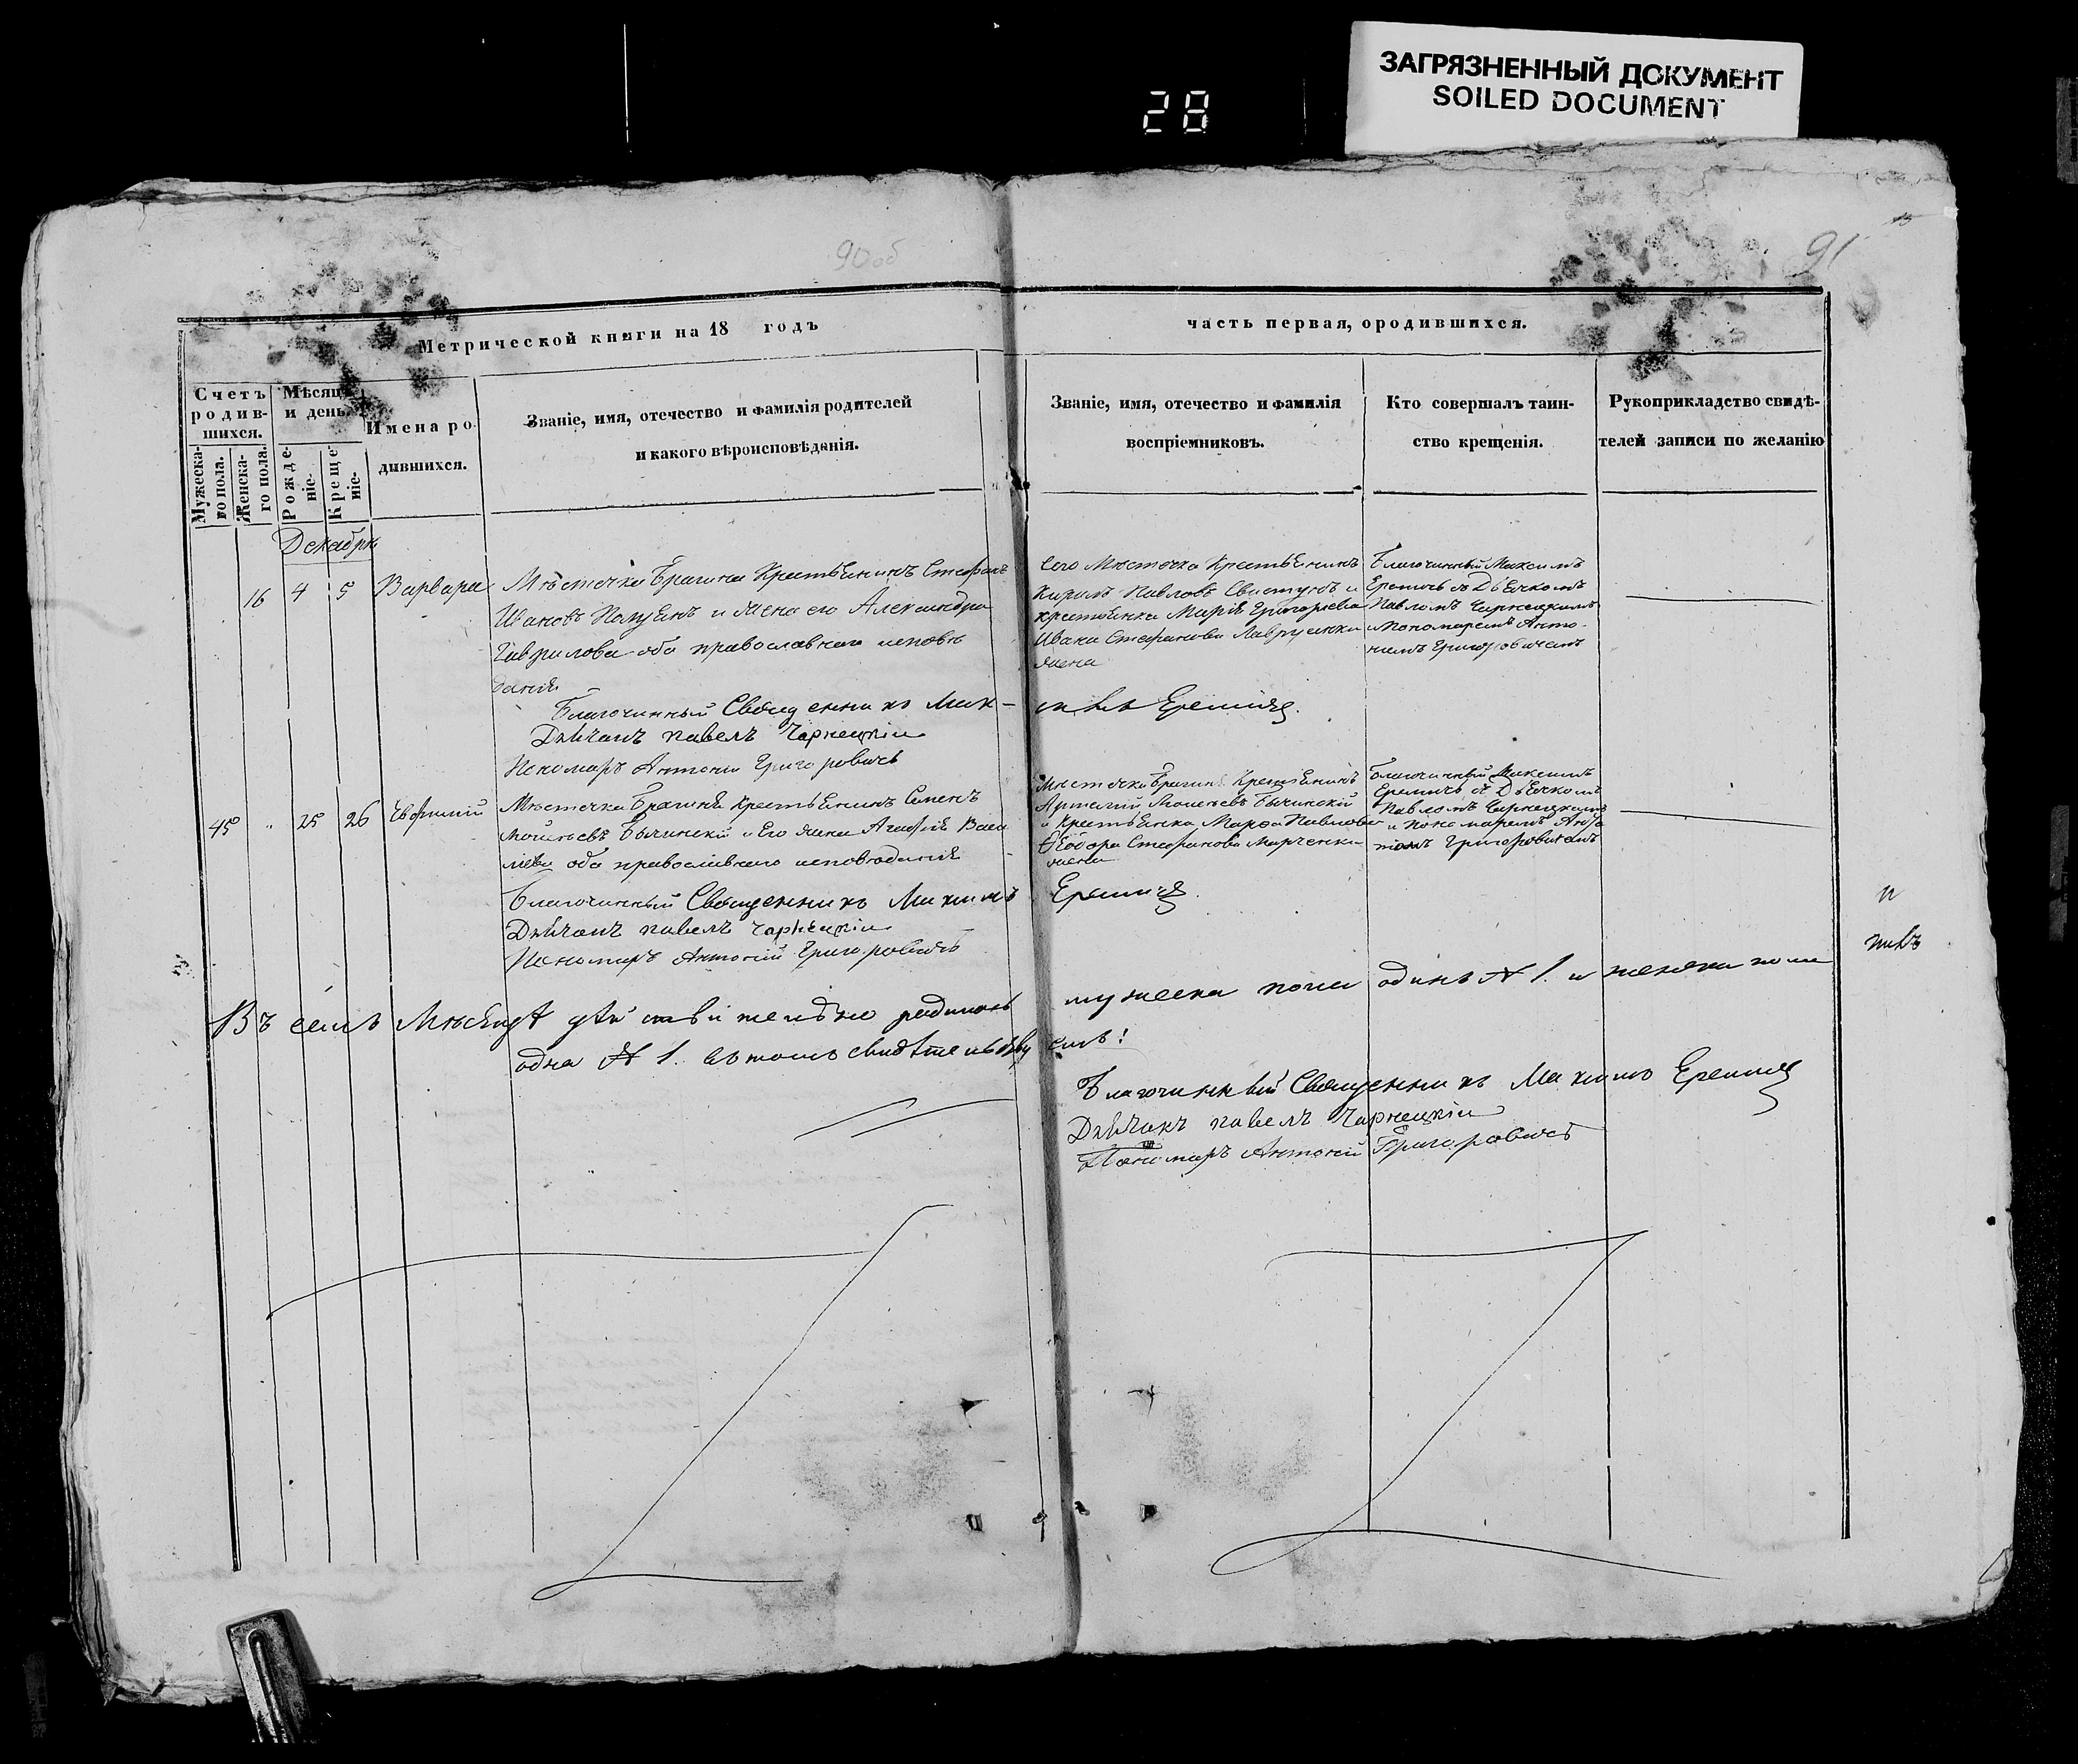 ЗАГРЯЗНЕННЫЙ ДОКУМЕНТ
SOILED DOCUMENT
28
90об
91
Метрической книги на 18 годъ
часть первая, ородившихся.
Счетъ родив-шихся.
Мужеска-го пола.
Женска-го пола.
Мѣсяцъ и день.
Рожде-ніе.
Креще-ніе.
Имена ро-
дившихся.
Званіе, имя, отечество и фамилія родителей
и какого вѣроисповѣданія.
Званіе, имя, отечество и фамилія
воспріемниковъ.
Кто совершалъ таин-
ство крещенія.
Рукоприкладство свидѣ-
телей записи по желанію
Декабрь
16 4 5 Варвара
Мѣстечка Брагина Крестьянинъ Стефанъ
Ивановъ и жена его Александра
Гаврилова оба православнаго исповѣ
данія
сего Мѣстечка Крестьянинъ
Кирилъ Павловъ Свистунъ и
крестьянка Марія Григорьева
Ивана Стефанова Лаврушенки
жена
Благочинный Максимъ
Еремичь съ Дьячкомъ
Павломъ Чернецкимъ
и Пономаремъ Анто-
ніемъ Григоровичемъ
Благочинный Священникъ Мак-
симъ Еремичъ.
Дьячокъ павелъ Чарнецкій
Пономарь Антоній Григоровичь
45 " 25 26 Евфимій
Мѣстечка Брагиня Крестьянинъ Семенъ
Моисѣевъ Бычинскій и Его жена Агафія Васи
лева оба православнаго исповѣданія
Мѣстечка Брагиня Крестьянинъ
Артемій Моисѣевъ Бычинскій
и Крестьянка Марѳа Павлова
Ѳеодора Стефанова Марченки
жена
Благочинный Максимъ
Еремичь съ Дьячкомъ
Павломъ Чернецкимъ
и Пономаремъ Анто
ніемъ Григоровичемъ
Благочинный Священникъ Максимъ Еремичъ.
Дьячокъ павелъ Чарнецкій
Пономарь Антоній Григоровичь
Въ семъ Мѣсяцѣ дѣйствительно родилось мужеска пола одинъ № 1. и женска пола
одна № 1. въ томъ свидѣтельству емъ!
Благочинный Священникъ Максимъ Еремичъ
Дьячокъ павелъ Чарнецкій
Пономарь Антоній Григоровичь